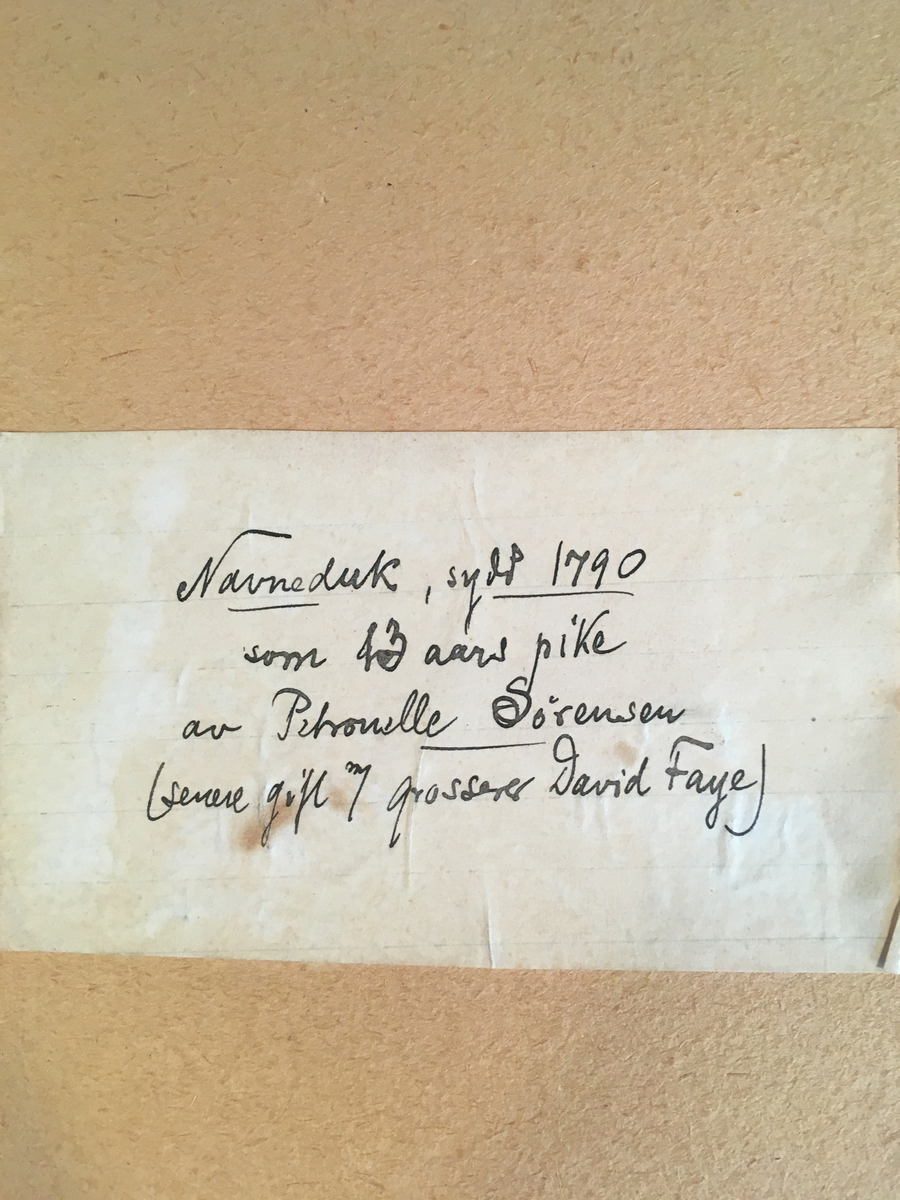 Navneduk, sydd 1790
som 13 aars pike
av Petronelle Sörensen
(senere gift m/ grosserer David Faye)